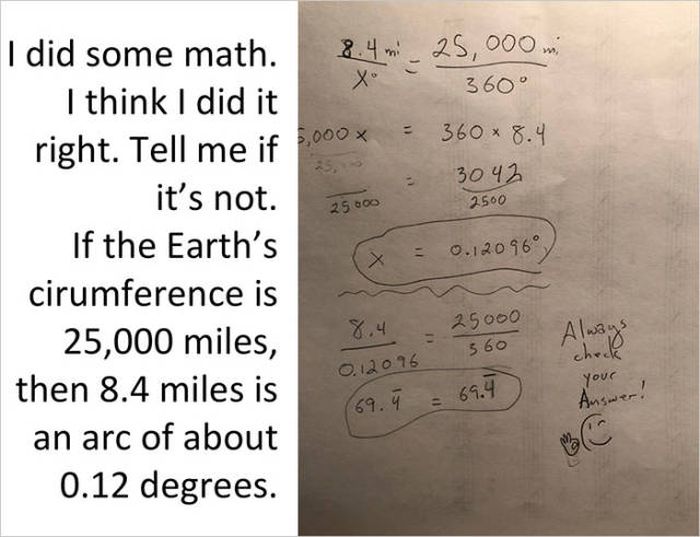 I did some math.
I think I did it
right. Tell me if
it’s not.
If the Earth’s
cirumference is
25,000 miles,
then 8.4 miles is
an arc of about
0.12 degrees.
8.4 mi = 25,000 mi
x° 360°
5,000 x = 360 × 8.4
= 3042
25000 2500
x = 0.12096°
8.4 = 25000
0.12096 360
69.4̅ = 69.4̅
Always
check
your
Answer!